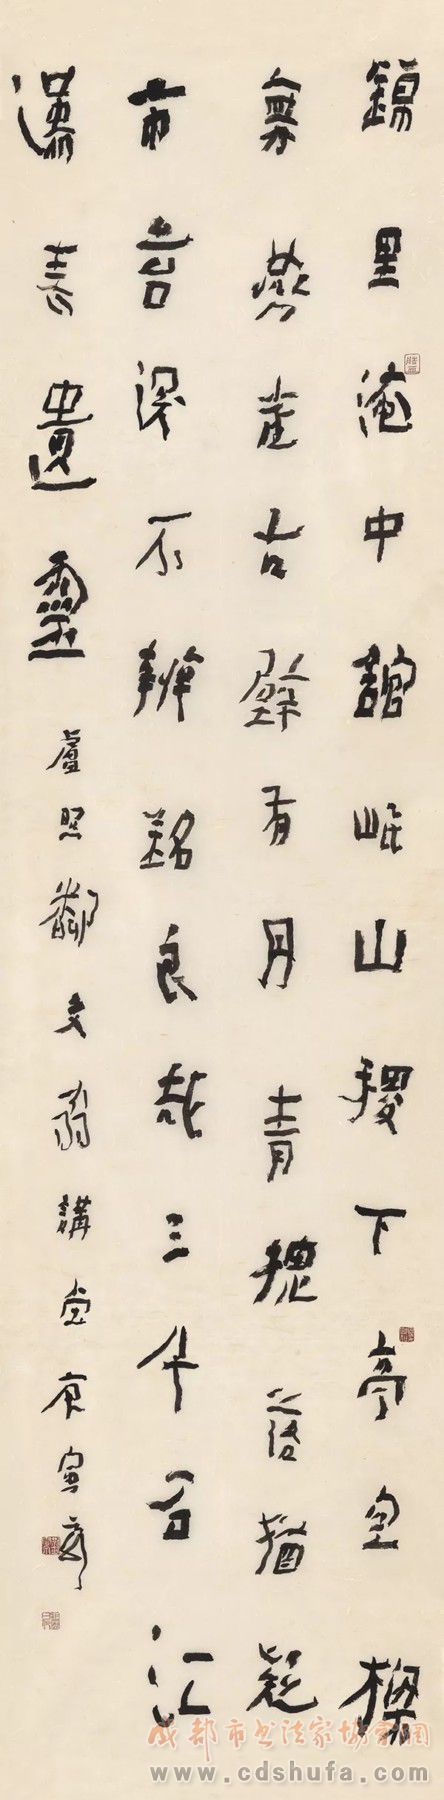 錦里淹中館岷山稷下亭空樑
無燕雀古壁有丹青槐落猶疑
市苔深不辨銘良哉三千石江
漢表遺靈 盧照鄰文翁講堂庚寅
成都市书法家协会网
www.cdshufa.com